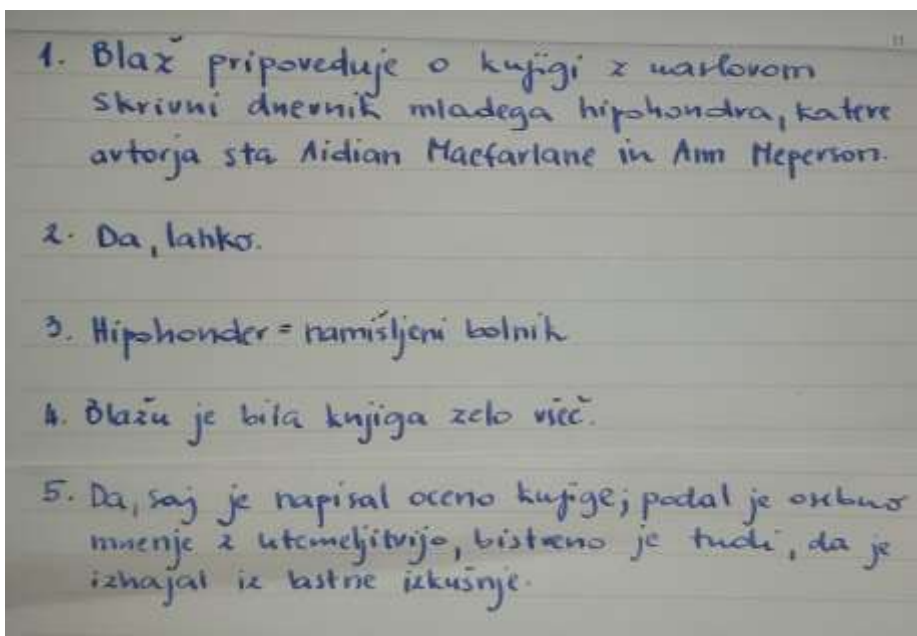 1. Blaž pripoveduje o knjigi z naslovom
Skrivni dnevnik mladega hipohondra, katere
avtorja sta Aidian Macfarlane in Ann Mcperson.
2. Da, lahko.
3. Hipohonder = namišljeni bolnik
4. Blažu je bila knjiga zelo všeč.
5. Da, saj je napisal oceno knjige; podal je osebno
mnenje z utemeljitvijo, bistveno je tudi, da je
izhajal iz lastne izkušnje.